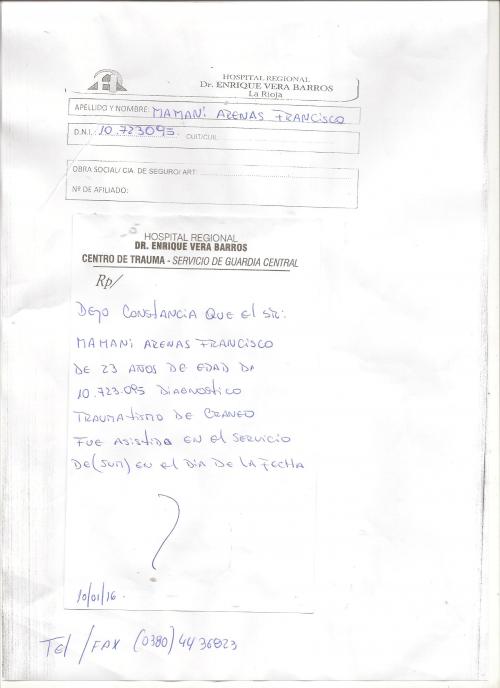 HOSPITAL REGIONAL
Dr. ENRIQUE VERA BARROS
La Rioja
APELLIDO Y NOMBRE: MAMANI ARENAS FRANCISCO
D.N.I.: 10.723095 CUIT/CUIL:
OBRA SOCIAL/ CIA. DE SEGURO/ ART:
Nº DE AFILIADO:
HOSPITAL REGIONAL
DR. ENRIQUE VERA BARROS
CENTRO DE TRAUMA - SERVICIO DE GUARDIA CENTRAL
Rp/
DEJO CONSTANCIA QUE El SR:
MAMANI ARENAS FRANCISCO
DE 23 AÑOS DE EDAD DNI
10.723.095 DIAGNOSTICO
TRAUMATISMO DE CRANEO
FUE ASISTIDO EN el SERVICIO
DE (SUM) EN el DIA DE LA FECHA
10/01/16.
Tel /FAX (0380) 44 36823